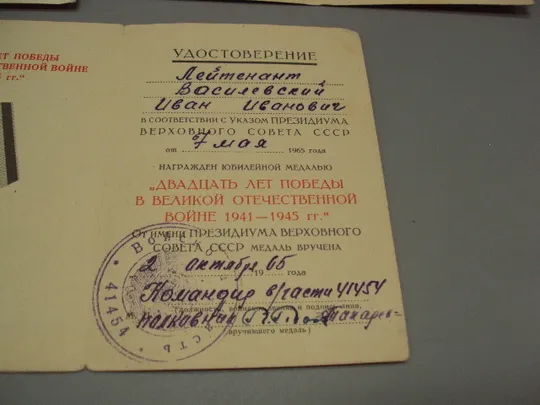 ЛЕТ ПОБЕДЫ
ЕСТВЕННОЙ ВОЙНЕ
гг."
УДОСТОВЕРЕНИЕ
Лейтенант
Василевский
Иван Иванович
В СООТВЕТСТВИИ С УКАЗОМ ПРЕЗИДИУМА
ВЕРХОВНОГО СОВЕТА СССР
от 7 мая 1965 года
НАГРАЖДЕН ЮБИЛЕЙНОЙ МЕДАЛЬЮ
„ДВАДЦАТЬ ЛЕТ ПОБЕДЫ
В ВЕЛИКОЙ ОТЕЧЕСТВЕННОЙ
ВОЙНЕ 1941—1945 гг."
От имени ПРЕЗИДИУМА ВЕРХОВНОГО
СОВЕТА СССР МЕДАЛЬ ВРУЧЕНА
2 октября 65 19 года
Командир в/части 41454
(должность, воинское звание и подпись лица,
М. полковник
вручившего медаль)